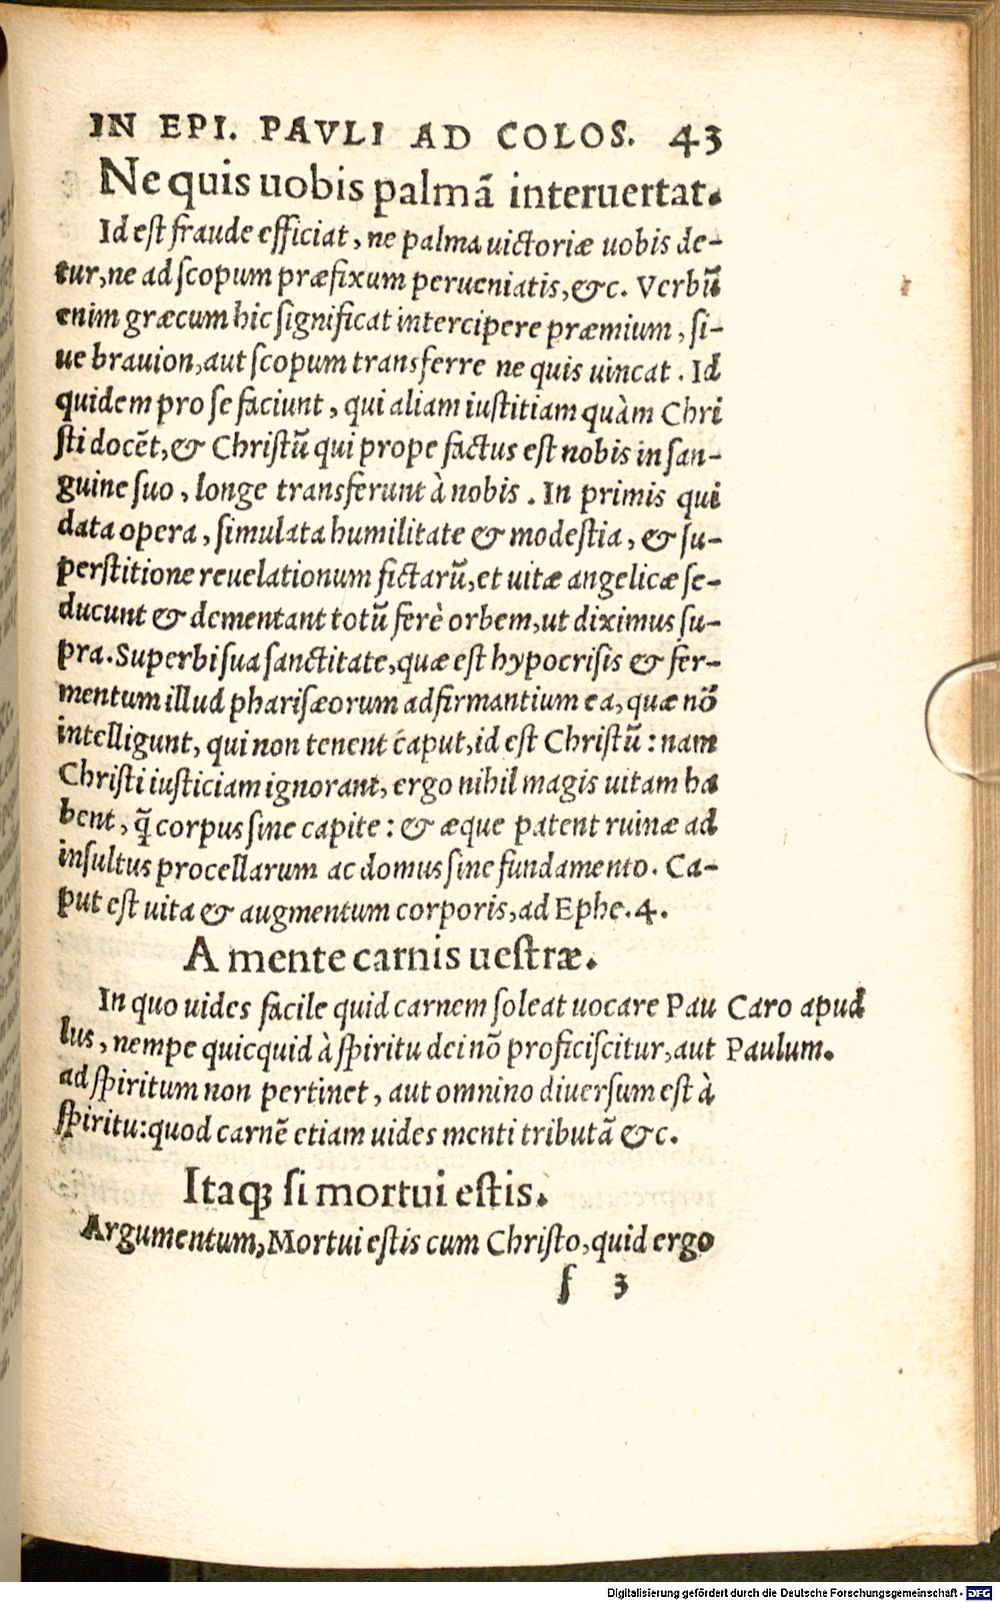 IN EPI. PAVLI AD COLOS. 43
Ne quis uobis palmã interuertat.
Id est fraude efficiat, ne palma uictoriæ uobis de-
tur, ne ad scopum præfixum perueniatis, &c. Verbũ
enim græcum hic significat intercipere præmium, si-
ue brauion, aut scopum transferre ne quis uincat. Id
quidem pro se faciunt, qui aliam iustitiam quàm Chri
sti docẽt, & Christũ qui prope factus est nobis in san-
guine suo, longe transferunt à nobis. In primis qui
data opera, simulata humilitate & modestia, & su-
perstitione reuelationum fictarũ, et uitæ angelicæ se-
ducunt & dementant totũ ferè orbem, ut diximus su-
pra. Superbi sua sanctitate, quæ est hypocrisis & fer-
mentum illud pharisæorum adfirmantium ea, quæ nõ
intelligunt, qui non tenent caput, id est Christũ: nam
Christi iusticiam ignorant, ergo nihil magis uitam ha
bent, q̃ corpus sine capite: & æque patent ruinæ ad
insultus procellarum ac domus sine fundamento. Ca-
put est uita & augmentum corporis, ad Ephe. 4.
A mente carnis uestræ.
In quo uides facile quid carnem soleat uocare Pau
lus, nempe quicquid à spiritu dei nõ proficiscitur, aut
ad spiritum non pertinet, aut omnino diuersum est à
spiritu: quod carnẽ etiam uides menti tributã &c.
Caro apud
Paulum.
Itaqꝫ si mortui estis.
Argumentum, Mortui estis cum Christo, quid ergo
f 3
Digitalisierung gefördert durch die Deutsche Forschungsgemeinschaft - DFG